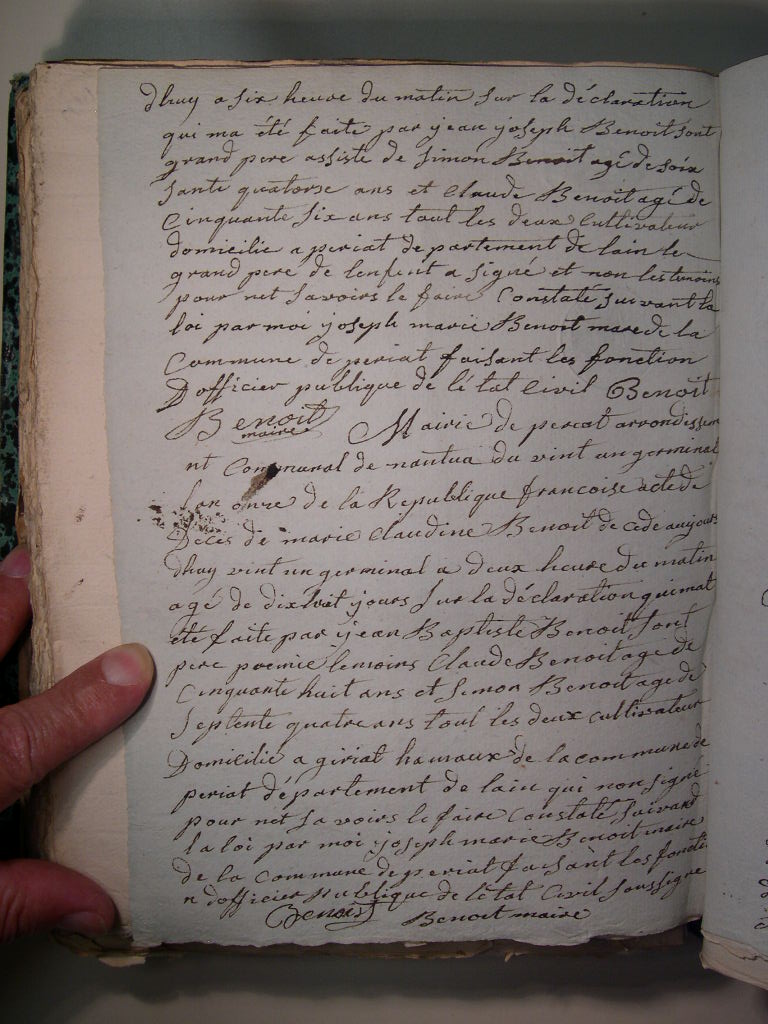 dhuy a six heure du matin sur la déclaration
qui ma été faite par jean joseph Benoit sont
grand pere assiste de simon Benoit agé de soix
sante quatorse ans et Claude Benoit agé de
Cinquante six ans tout les deux Cultivateur
domicilie a periat departement de lain le
grand pere de lenfent a signé et non les temoins
pour net savoirs le faire Constaté suivant la
loi par moi joseph marie Benoit mare de la
Commune de periat faisant les fonction
Dofficier publique de létat Civil Benoit
Benoit
maire Mairie de periat arrondissem
nt Communal de nantua du vint un germinal
lan onze de la Republique francoise acte de
Décès de marie Claudine Benoit de cede aujour
dhuy vint un germinal a deux heure du matin
agé de dix huit jours sur la déclaration qui mat
été faite par jean Baptiste Benoit sont
pere premie temoins Claude Benoit age de
Cinquante huit ans et simon Benoit age de
septente quatre ans tout les deux cultivateur
Domicilie a giriat hamaux de la commune de
periat département de lain qui non signé
pour net savoirs le faire Constaté suivand
la loi par moi joseph marie Benoit maire
de la Commune de periat faisant les foncti
n dofficier publique de létat Civil soussigne
Benoit Benoit maire